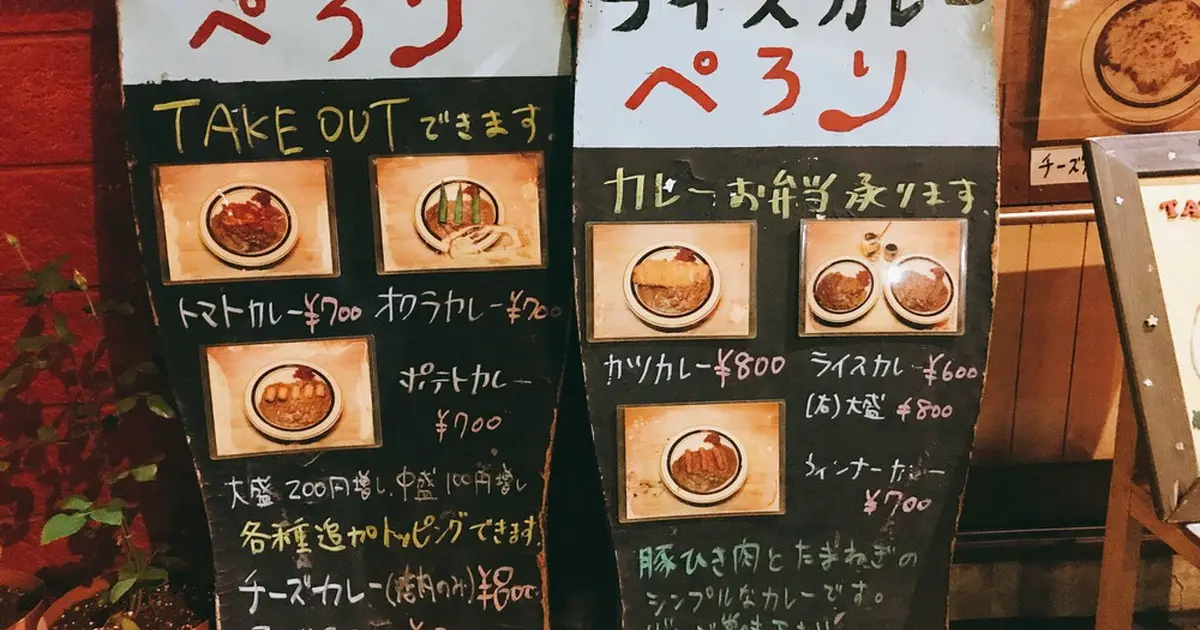 ぺろり
TAKE OUTできます。
トマトカレー¥700
オクラカレー¥700
ポテトカレー
¥700
大盛200円増し、中盛100円増し
各種追加トッピングできます
チーズカレー(店内のみ)¥800
ライスカレー
ぺろり
カレーお弁当承ります。
カツカレー¥800
ライスカレー¥600
(右)大盛 ¥800
ウィンナーカレー
¥700
豚ひき肉とたまねぎの
シンプルなカレーです。
チーズ
TA